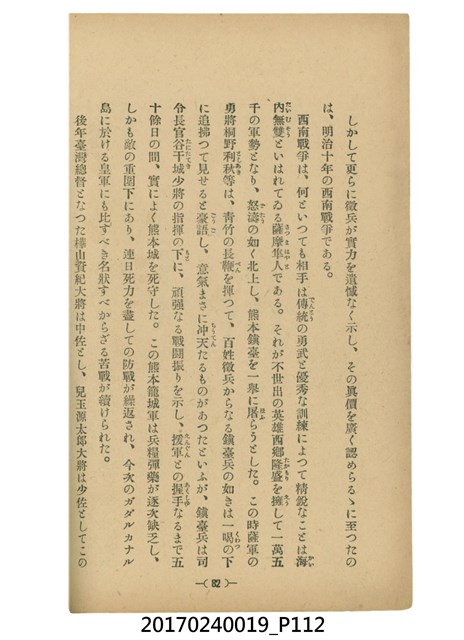 しかして更らに徴兵が實力を遺憾なく示し、その眞價を廣く認めらるゝに至つたの
は、明治十年の西南戰爭である。
西南戰爭は、何といつても相手は傳統の勇武と優秀な訓練によつて精銳なことは海
內無雙といはれてゐる薩摩隼人である。それが不世出の英雄西鄕隆盛を擁して一萬五
千の軍勢となり、怒濤の如く北上し、熊本鎭臺を一擧に屠らうとした。この時薩軍の
勇將桐野利秋等は、靑竹の長鞭を揮つて、百姓徴兵からなる鎭臺兵の如きは一喝の下
に追拂つて見せると豪語し、意氣まさに冲天たるものがあつたといふが、鎭臺兵は司
令長官谷干城少將の指揮の下に、頑强なる戰鬪振りを示し、援軍との握手なるまで五
十餘日の間、實によく熊本城を死守した。この熊本籠城軍は兵糧彈藥が逐次缺乏し、
しかも敵の重圍下にあり、連日死力を盡しての防戰が繰返され、今次のガダルカナル
島に於ける皇軍にも比すべき名狀すべからざる苦戰が續けられた。
後年臺灣總督となつた樺山資紀大將は中佐とし、兒玉源太郞大將は少佐としてこの
—( 82 )—
20170240019_P112